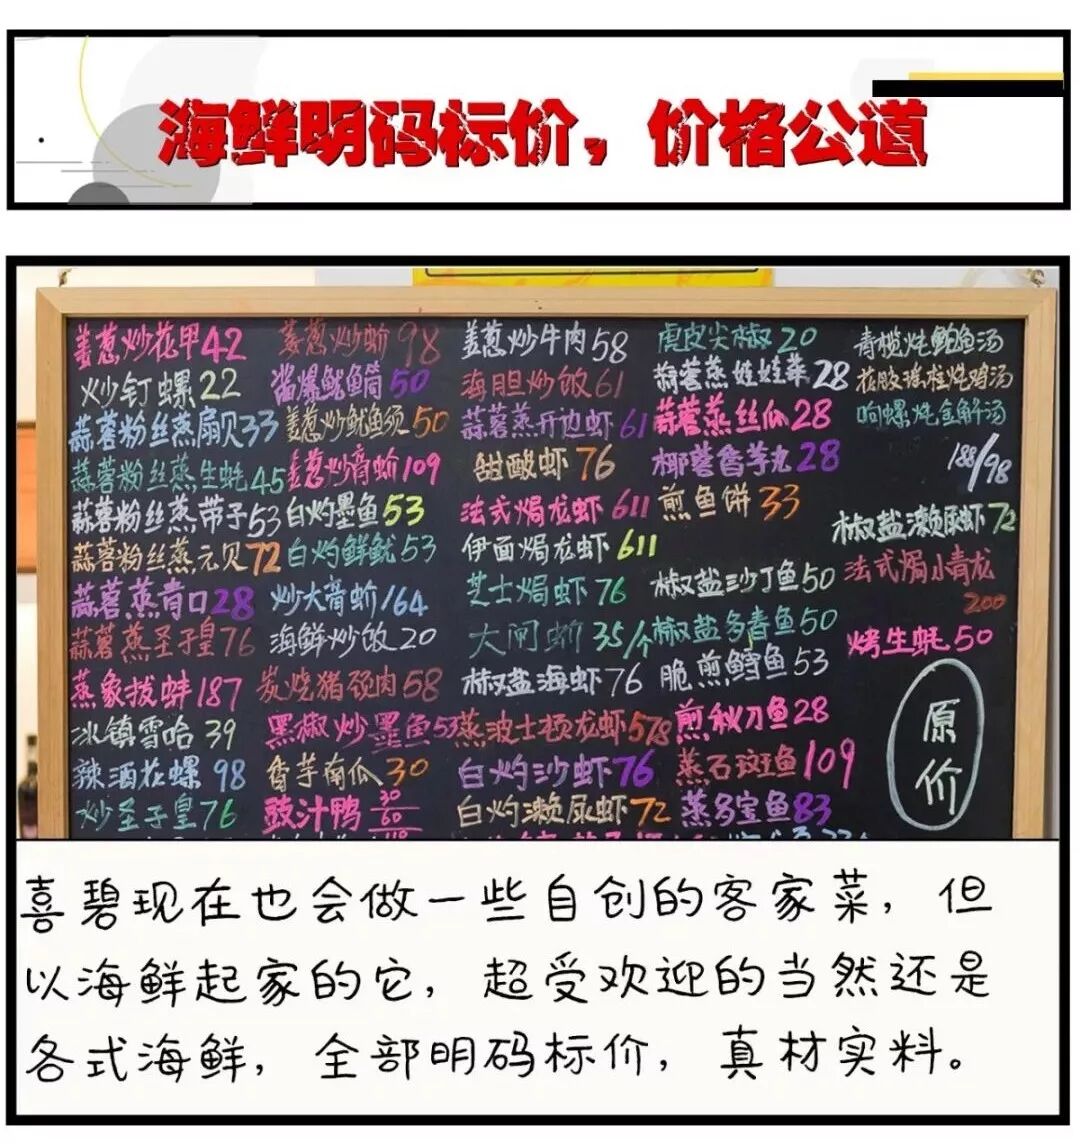 海鲜明码标价，价格公道
姜葱炒花甲42
炒钉螺22
蒜蓉粉丝蒸扇贝33
蒜蓉粉丝蒸生蚝45
蒜蓉粉丝蒸带子53
蒜蓉粉丝蒸元贝72
蒜蓉蒸青口28
蒜蓉蒸圣子皇76
蒸象拔蚌187
冰镇雪哈39
辣酒花螺98
炒圣子皇76
姜葱炒蚧98
酱爆鱿鱼筒50
姜葱炒鱿鱼须50
姜葱炒膏蚧109
白灼墨鱼53
白灼鲜鱿53
炒大膏蚧164
海鲜炒饭20
炭烧猪颈肉58
黑椒炒墨鱼53
香芋南瓜30
豉汁鸭30
60
姜葱炒牛肉58
海胆炒饭61
蒜蓉蒸开边虾61
甜酸虾76
法式焗龙虾611
伊面焗龙虾611
芝士焗虾76
大闸蚧35/个
椒盐海虾76
蒸波士顿龙虾578
白灼沙虾76
白灼濑尿虾72
虎皮尖椒20
蒜蓉蒸娃娃菜28
蒜蓉蒸丝瓜28
椰蓉香芋丸28
煎鱼饼33
椒盐沙丁鱼50
椒盐多春鱼50
脆煎鳕鱼53
煎秋刀鱼28
蒸石斑鱼109
蒸多宝鱼83
青榄炖鲍鱼汤
花胶瑶柱炖鸡汤
响螺炖金解汤
188/98
椒盐濑尿虾72
法式焗小青龙
200
烤生蚝50
原价
喜碧现在也会做一些自创的客家菜，但
以海鲜起家的它，超受欢迎的当然还是
各式海鲜，全部明码标价，真材实料。